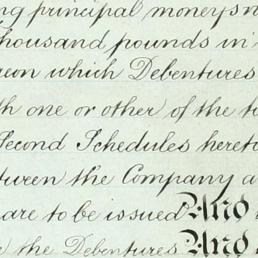 ng principal moneys n
housand pounds in
eon which Debentures
th one or other of the to
Second Schedules hereto
tween the Company a
are to be issued And
the Debentures And